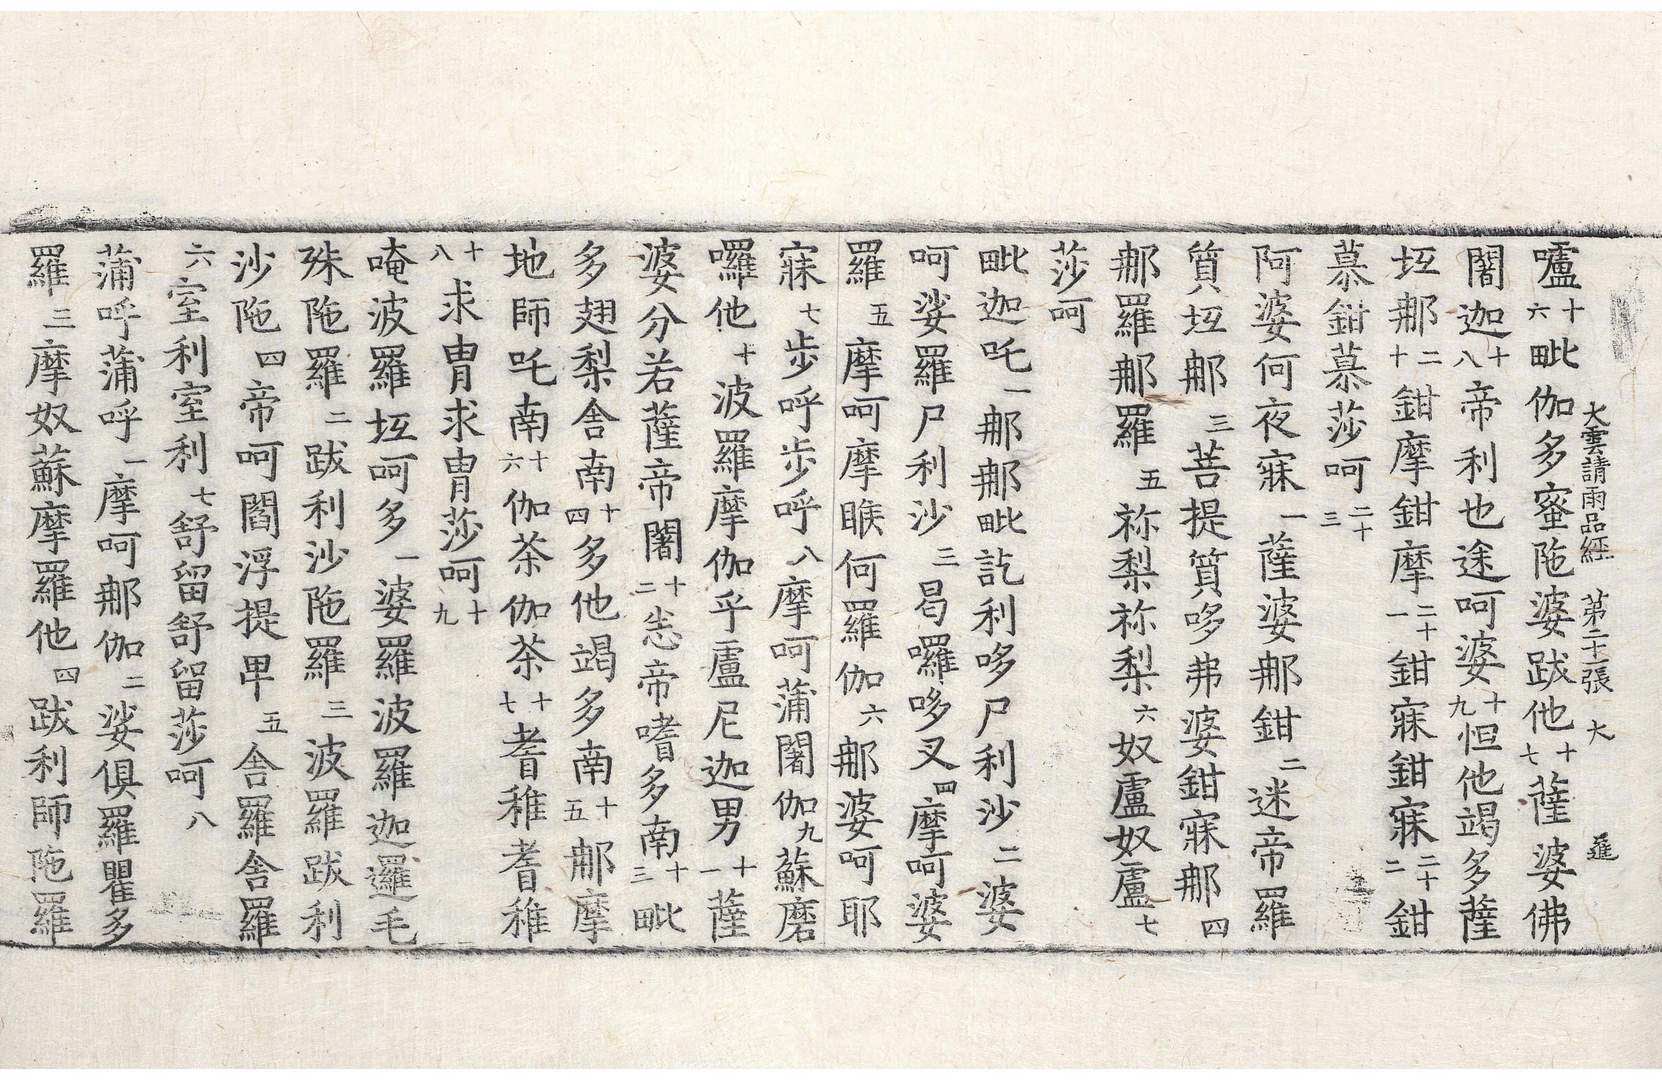 大雲請雨品經 第二十二張 大 進
嚧十六毗伽多蜜陁婆跋他十七薩婆佛
闍迦十八帝利也途呵婆十九怛他竭多薩
坘那二十鉗摩鉗摩二十一鉗寐鉗寐二十二鉗
慕鉗慕莎呵二十三
阿婆何夜寐一薩婆那鉗二迷帝羅
質坘那三菩提質哆弗婆鉗寐那四
那羅那羅五祢梨祢梨六奴盧奴盧七
莎呵
毗迦吒一那那毗訖利哆尸利沙二婆
呵娑羅尸利沙三曷囉哆叉四摩呵婆
羅五摩呵摩睺何羅伽六那婆呵耶
寐七步呼步呼八摩呵蒲闍伽九蘇磨
囉他十波羅摩伽乎盧尼迦男十一薩
婆分若薩帝闍十二恙帝嗜多南十三毗
多翅梨舍南十四多他竭多南十五那摩
地師吒南十六伽茶伽茶十七耆稚耆稚
十八求胄求胄莎呵十九
唵波羅坘呵多一婆羅波羅迦邏毛
殊陁羅二跋利沙陁羅三波羅跋利
沙陁四帝呵閻浮提卑五舍羅舍羅
六室利室利七舒留舒留莎呵八
蒲呼蒲呼一摩呵那伽二娑俱羅瞿多
羅三摩奴蘇摩羅他四跋利師陁羅